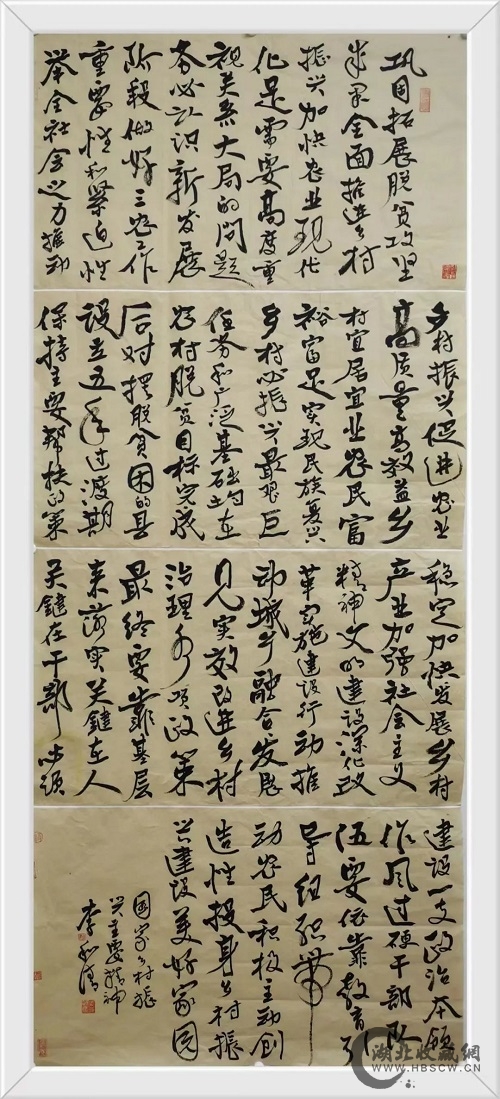 巩固拓展脱贫攻坚
成果全面推进乡村
振兴加快农业现代
化是需要高度重
视关系大局的问题
务必认识新发展
阶段做好三农工作
重要性和紧迫性
举全社会之力推动
乡村振兴促进农业
高质量高效益乡
村宜居宜业农民富
裕富足实现民族复兴
乡村必振兴最艰巨
任务和广泛基础均在
农村脱贫目标完成
后对摆脱贫困的县
设立五年过渡期
保持主要帮扶的策
稳定加快发展乡村
产业加强社会主义
精神文明建设深化改
革实施建设行动推
动城乡融合发展
见实效改进乡村
治理各项政策
最终要靠基层
来落实关键在人
关键在干部必须
建设一支政治本领
作风过硬干部队
伍要依靠教育引
导组织带
动农民积极主动创
造性投身乡村振
兴建设美好家园
国家乡村振
兴主要精神
李和清
湖北收藏網
WWW.HBSCW.CN